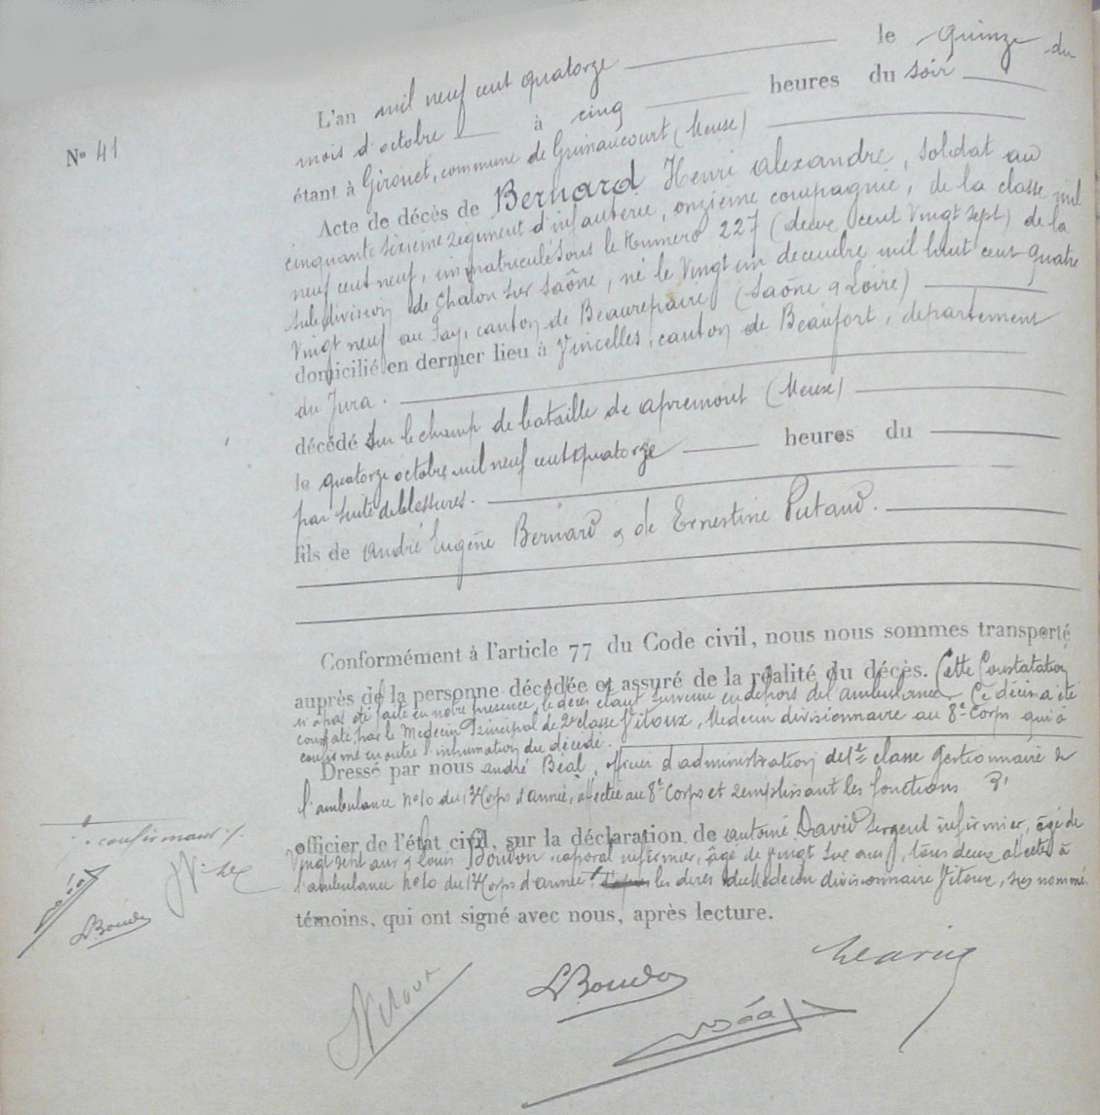 L'an mil neuf cent quatorze le quinze du
mois d'octobre à cinq heures du soir
Nº 41
étant à Gironet, commune de Grimaucourt (Meuse)
Acte de décès de Bernard Henri Alexandre, soldat au
cinquante sixième régiment d'infanterie, onzième compagnie, de la classe mil
neuf cent neuf, immatriculé sous le Numéro 227 (deux cent vingt sept) de la
subdivision de Chalon sur Saône, né le vingt un décembre mil huit cent quatre
vingt neuf au Fay, canton de Beaurepaire (Saône & Loire)
domicilié en dernier lieu à Vincelles, canton de Beaufort, département
du Jura.
décédé sur le champ de bataille de Apremont (Meuse)
le quatorze octobre mil neuf cent quatorze heures du
par suite de blessures.
fils de André Eugène Bernard & de Ernestine Putaud.
Conformément à l'article 77 du Code civil, nous nous sommes transporté
auprès de la personne décédée et assuré de la réalité du décès. Cette Constatation
n'a pas été faite en notre présence, le décès étant survenu en dehors de l'ambulance. Ce décès a été
constaté par le Médecin Principal de 2e classe Vitoux, Médecin divisionnaire au 8e Corps qui a
confirmé en outre l'inhumation du décédé.
Dressé par nous André Béal, officier d'administration de 1re classe gestionnaire de
l'ambulance nº 10 du 13e Corps d'Armée, affectée au 8e Corps et remplissant les fonctions d'
officier de l'état civil, sur la déclaration de Antoine David sergent infirmier, âgé de
vingt sept ans & Louis Boudon caporal infirmier, âgé de vingt six ans, tous deux affectés à
l'ambulance nº 10 du 13e Corps d'armée les dires du Médecin divisionnaire Vitoux, sus nommé
témoins, qui ont signé avec nous, après lecture.
confirmant
LBoudon
Vitoux
LBoudon
Béal